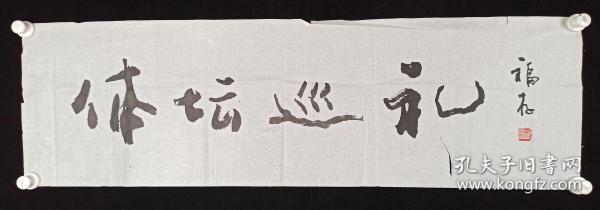 体坛巡礼
福存
孔夫子旧书网
www.kongfz.com